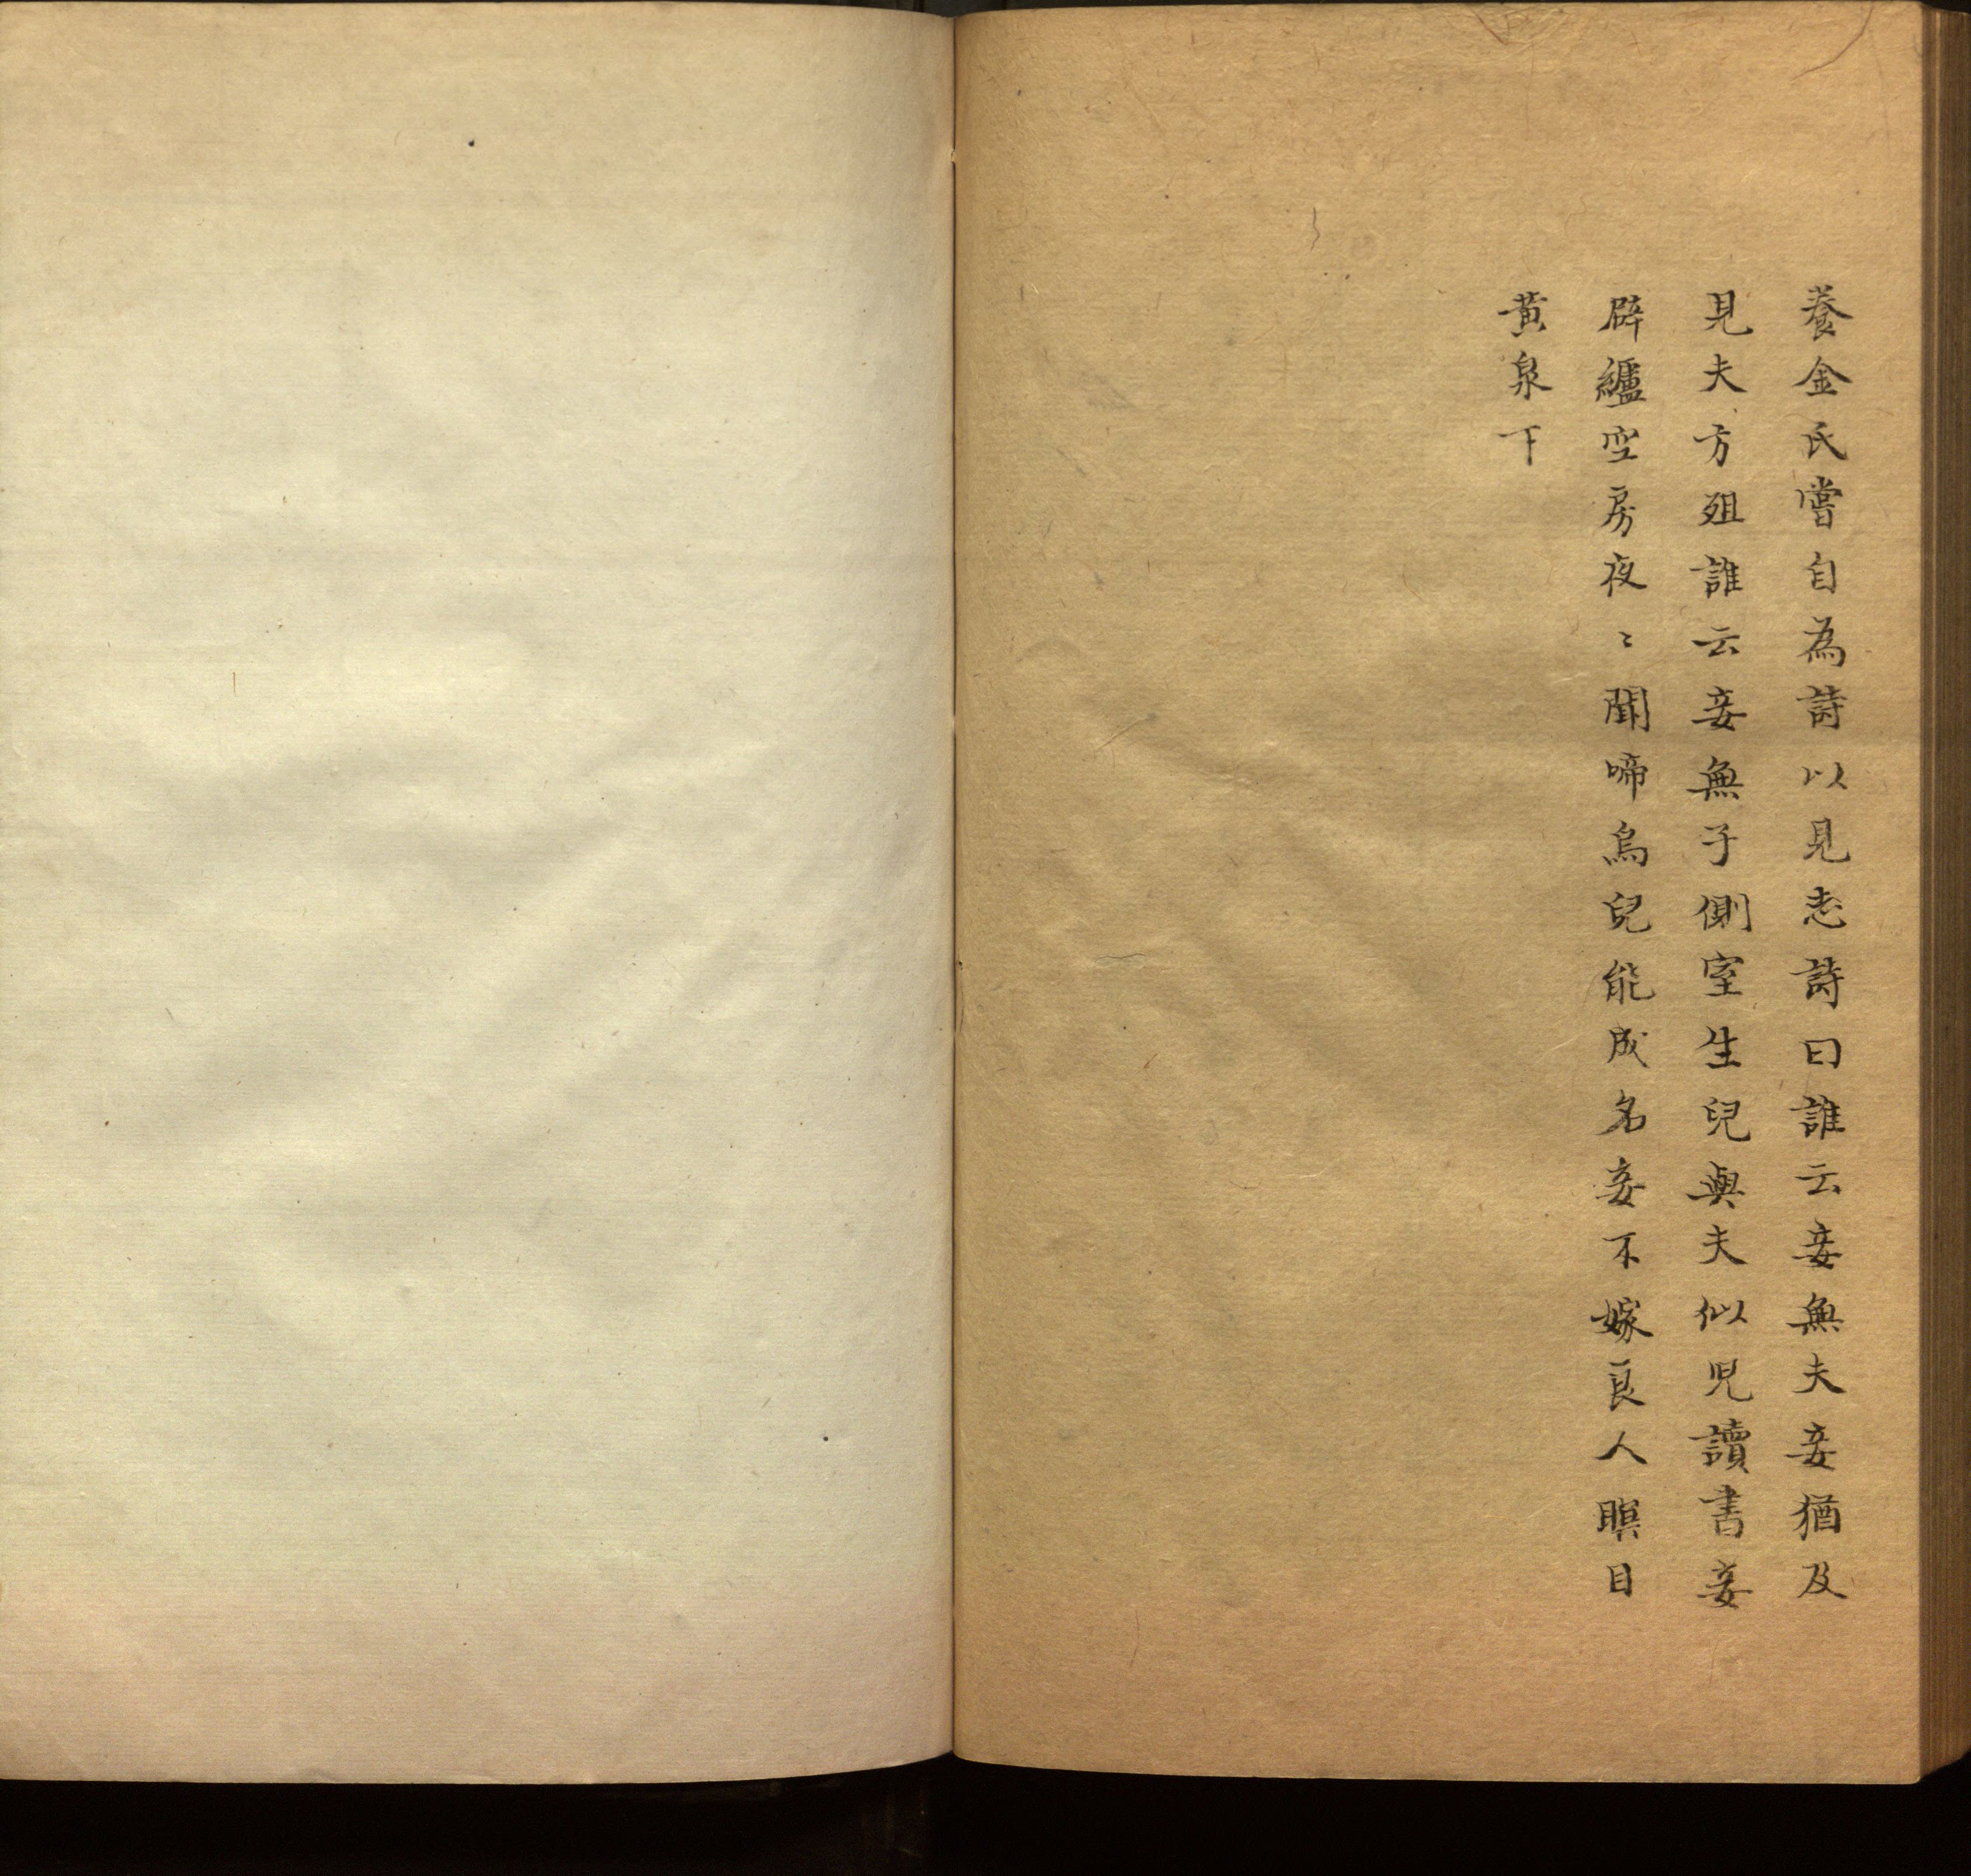 養金氏嘗自為詩以見志詩曰誰云妾無夫妾猶及
見夫方殂誰云妾無子側室生兒與夫似児讀書妾
辟纑空房夜〻聞啼烏兒能成名妾不嫁良人瞑目
黄泉下